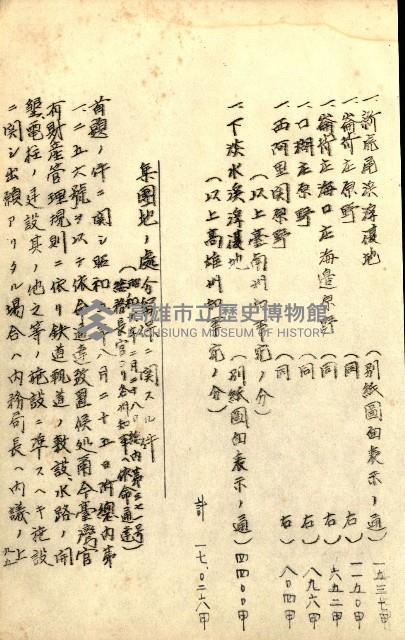 一、新虎尾溪浮復地 (別紙圖面表示ノ通) 一五三七甲
一、崙背庄原野 (同 右) 一一五〇甲
一、崙背庄海口庄海邊原野 (同 右) 六五二甲
一、口湖庄原野 (同 右) 八九六甲
一、西阿里関原野 (同 右) 八〇四甲
(以上臺南州知事宛ノ分)
一、下淡水溪浮復地 (別紙圖面表示ノ通) 四四〇〇甲
(以上高雄州知事宛ノ分)
計 一七、〇二六甲
集團地ノ處分留保ニ関スル件
(昭和 年二月二十八日総内第三七一号
総務長官ヨリ各州知事ヘ依命通達)
首題ノ件ニ関シ昭和 年八月二十五日附總内第
一二五六號ヲ以テ依命通達致置候処爾今臺灣官
有財産管理規則ニ依リ鉄道軌道ノ敷設、水路ノ開
墾電柱ノ建設其ノ他之等ノ施設ニ準スヘキ施設
ニ関シ出願アリタル場合ハ内務局長ヘ内議ノ上
高雄市立歷史博物館
KAOHSIUNG MUSEUM OF HISTORY